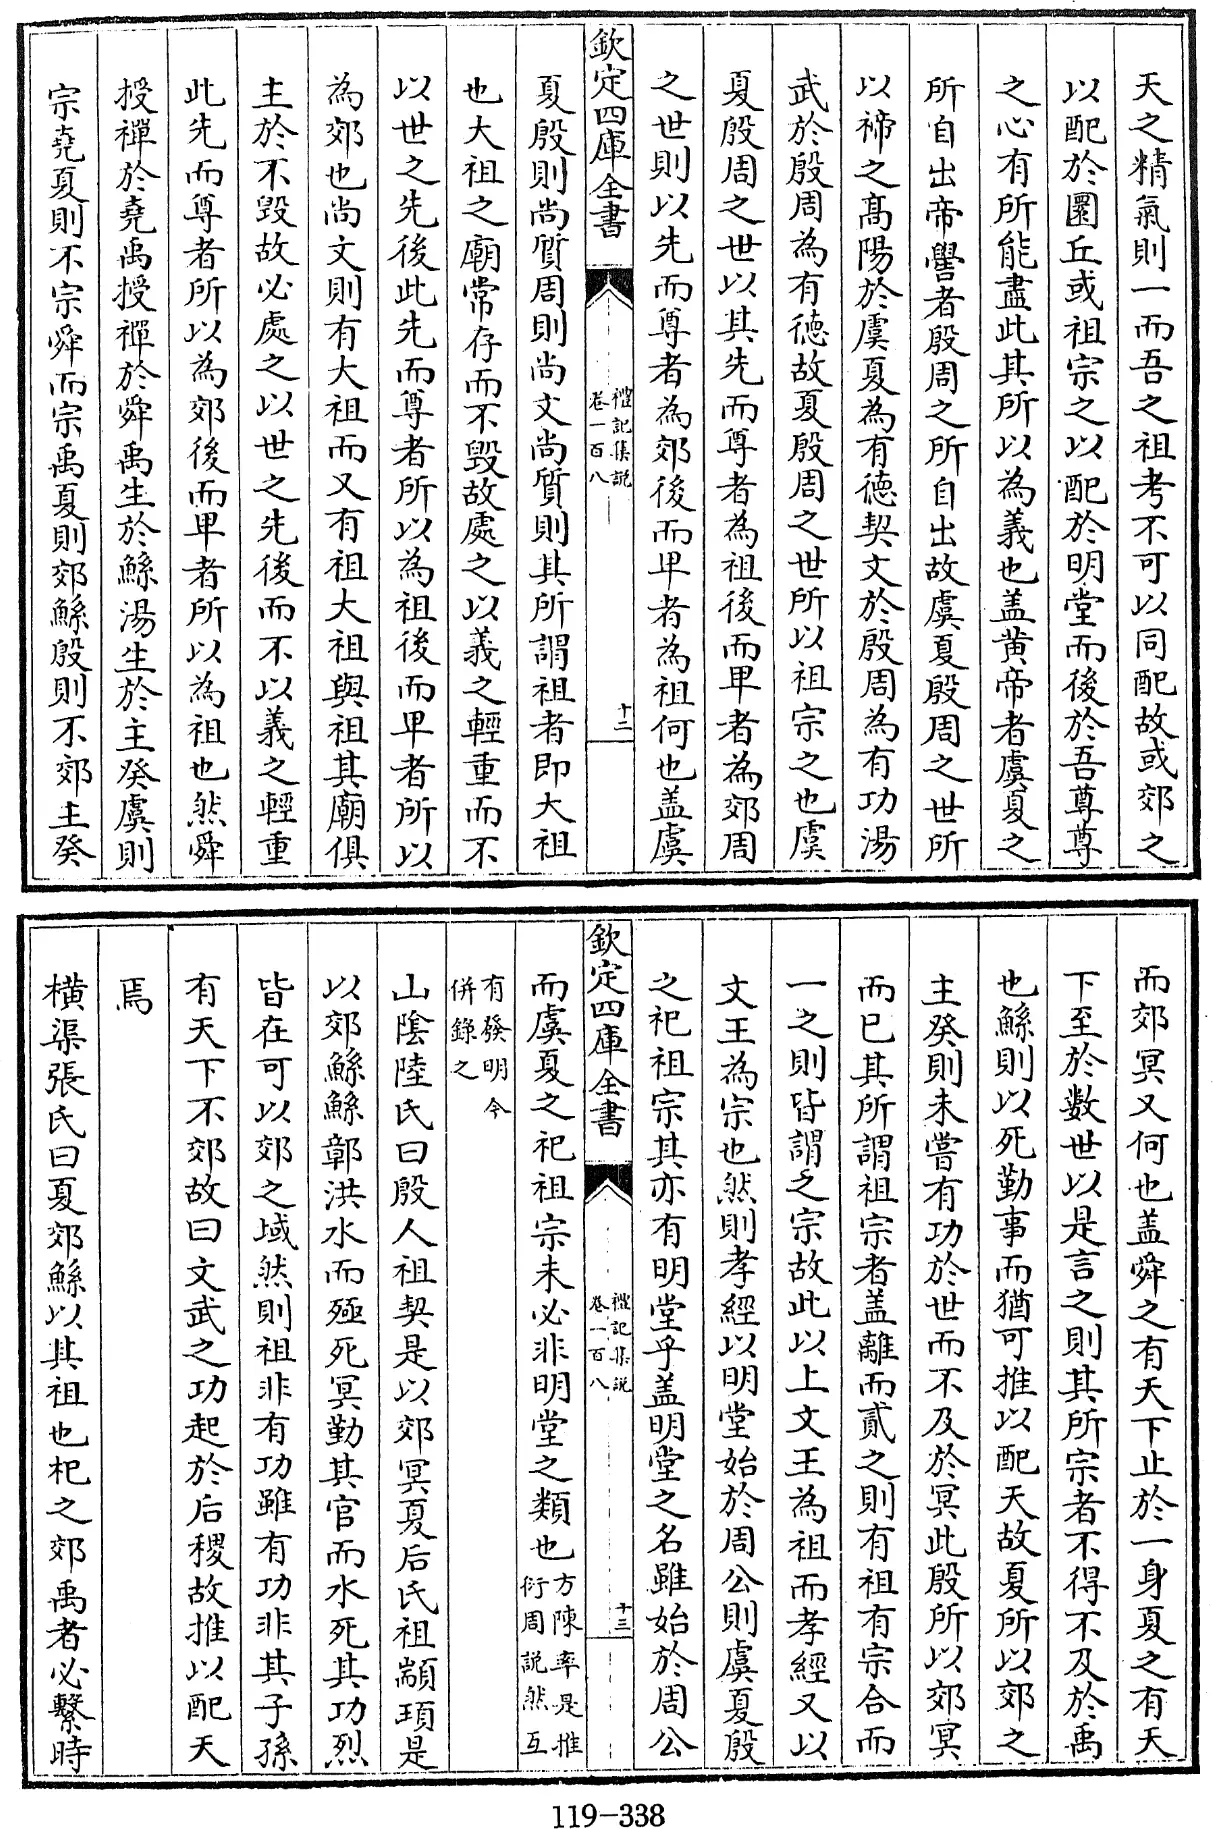 天之精氣則一而吾之祖考不可以同配故或郊之
以配於圜丘或祖宗之以配於明堂而後於吾尊尊
之心有所能盡此其所以為義也盖黄帝者虞夏之
所自出帝嚳者殷周之所自出故虞夏殷周之世所
以禘之髙陽於虞夏為有德契文於殷周為有功湯
武於殷周為有徳故夏殷周之世所以祖宗之也虞
夏殷周之世以其先而尊者為祖後而卑者為郊周
之世則以先而尊者為郊後而卑者為祖何也盖虞
欽定四庫全書
禮記集説
卷一百八
十二
夏殷則尚質周則尚文尚質則其所謂祖者即大祖
也大祖之廟常存而不毁故處之以義之輕重而不
以世之先後此先而尊者所以為祖後而卑者所以
為郊也尚文則有大祖而又有祖大祖與祖其廟俱
主於不毁故必處之以世之先後而不以義之輕重
此先而尊者所以為郊後而卑者所以為祖也然舜
授禪於堯禹授禪於舜禹生於鯀湯生於主癸虞則
宗堯夏則不宗舜而宗禹夏則郊鯀殷則不郊主癸
而郊冥又何也盖舜之有天下止於一身夏之有天
下至於数世以是言之則其所宗者不得不及於禹
也鯀則以死勤事而猶可推以配天故夏所以郊之
主癸則未嘗有功於世而不及於冥此殷所以郊冥
而已其所謂祖宗者盖離而貳之則有祖有宗合而
一之則皆謂之宗故此以上文王為祖而孝經又以
文王為宗也然則孝經以明堂始於周公則虞夏殷
之祀祖宗其亦有明堂乎盖明堂之名雖始於周公
欽定四庫全書
禮記集説
卷一百八
十三
而虞夏之祀祖宗未必非明堂之類也方陳率是推
衍周説然互
有發明今
併錄之
山陰陸氏曰殷人祖契是以郊冥夏后氏祖顓頊是
以郊鯀鯀鄣洪水而殛死冥勤其官而水死其功烈
皆在可以郊之域然則祖非有功雖有功非其子孫
有天下不郊故曰文武之功起於后稷故推以配天
焉
横渠張氏曰夏郊鯀以其祖也杞之郊禹者必繫時
119-338